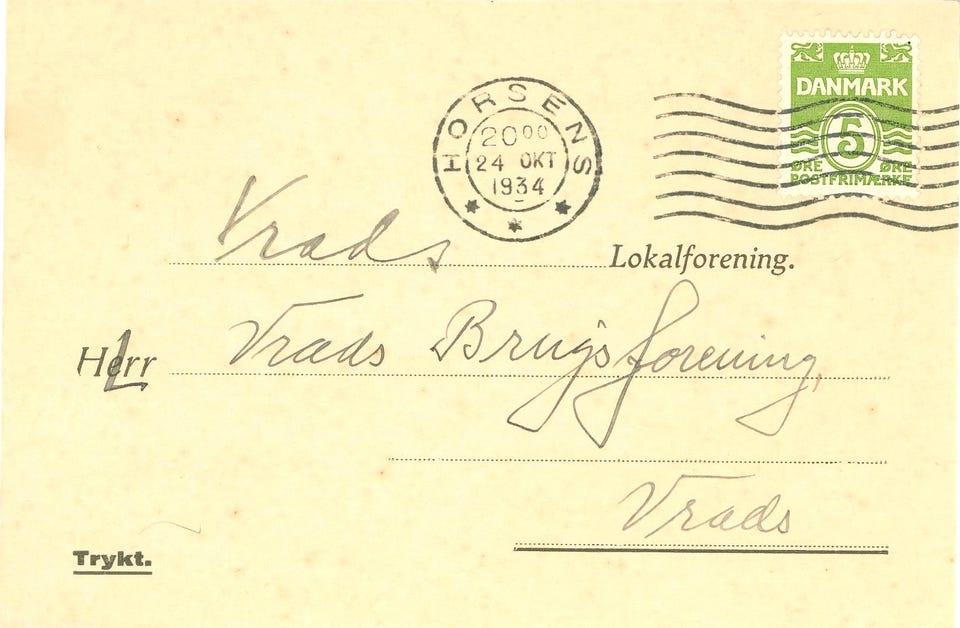 DANMARK
5
ØRE ØRE
POSTFRIMÆRKE
HORSENS
20 00
24 OKT
1934
Vrads Lokalforening.
Herr Vrads Brugsforening,
Vrads
Trykt.